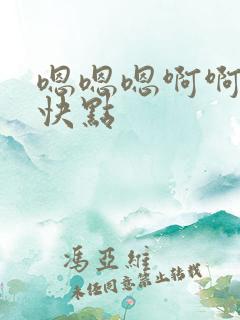 嗯嗯嗯啊啊
快點
馮亞維
未任同意禁止转载